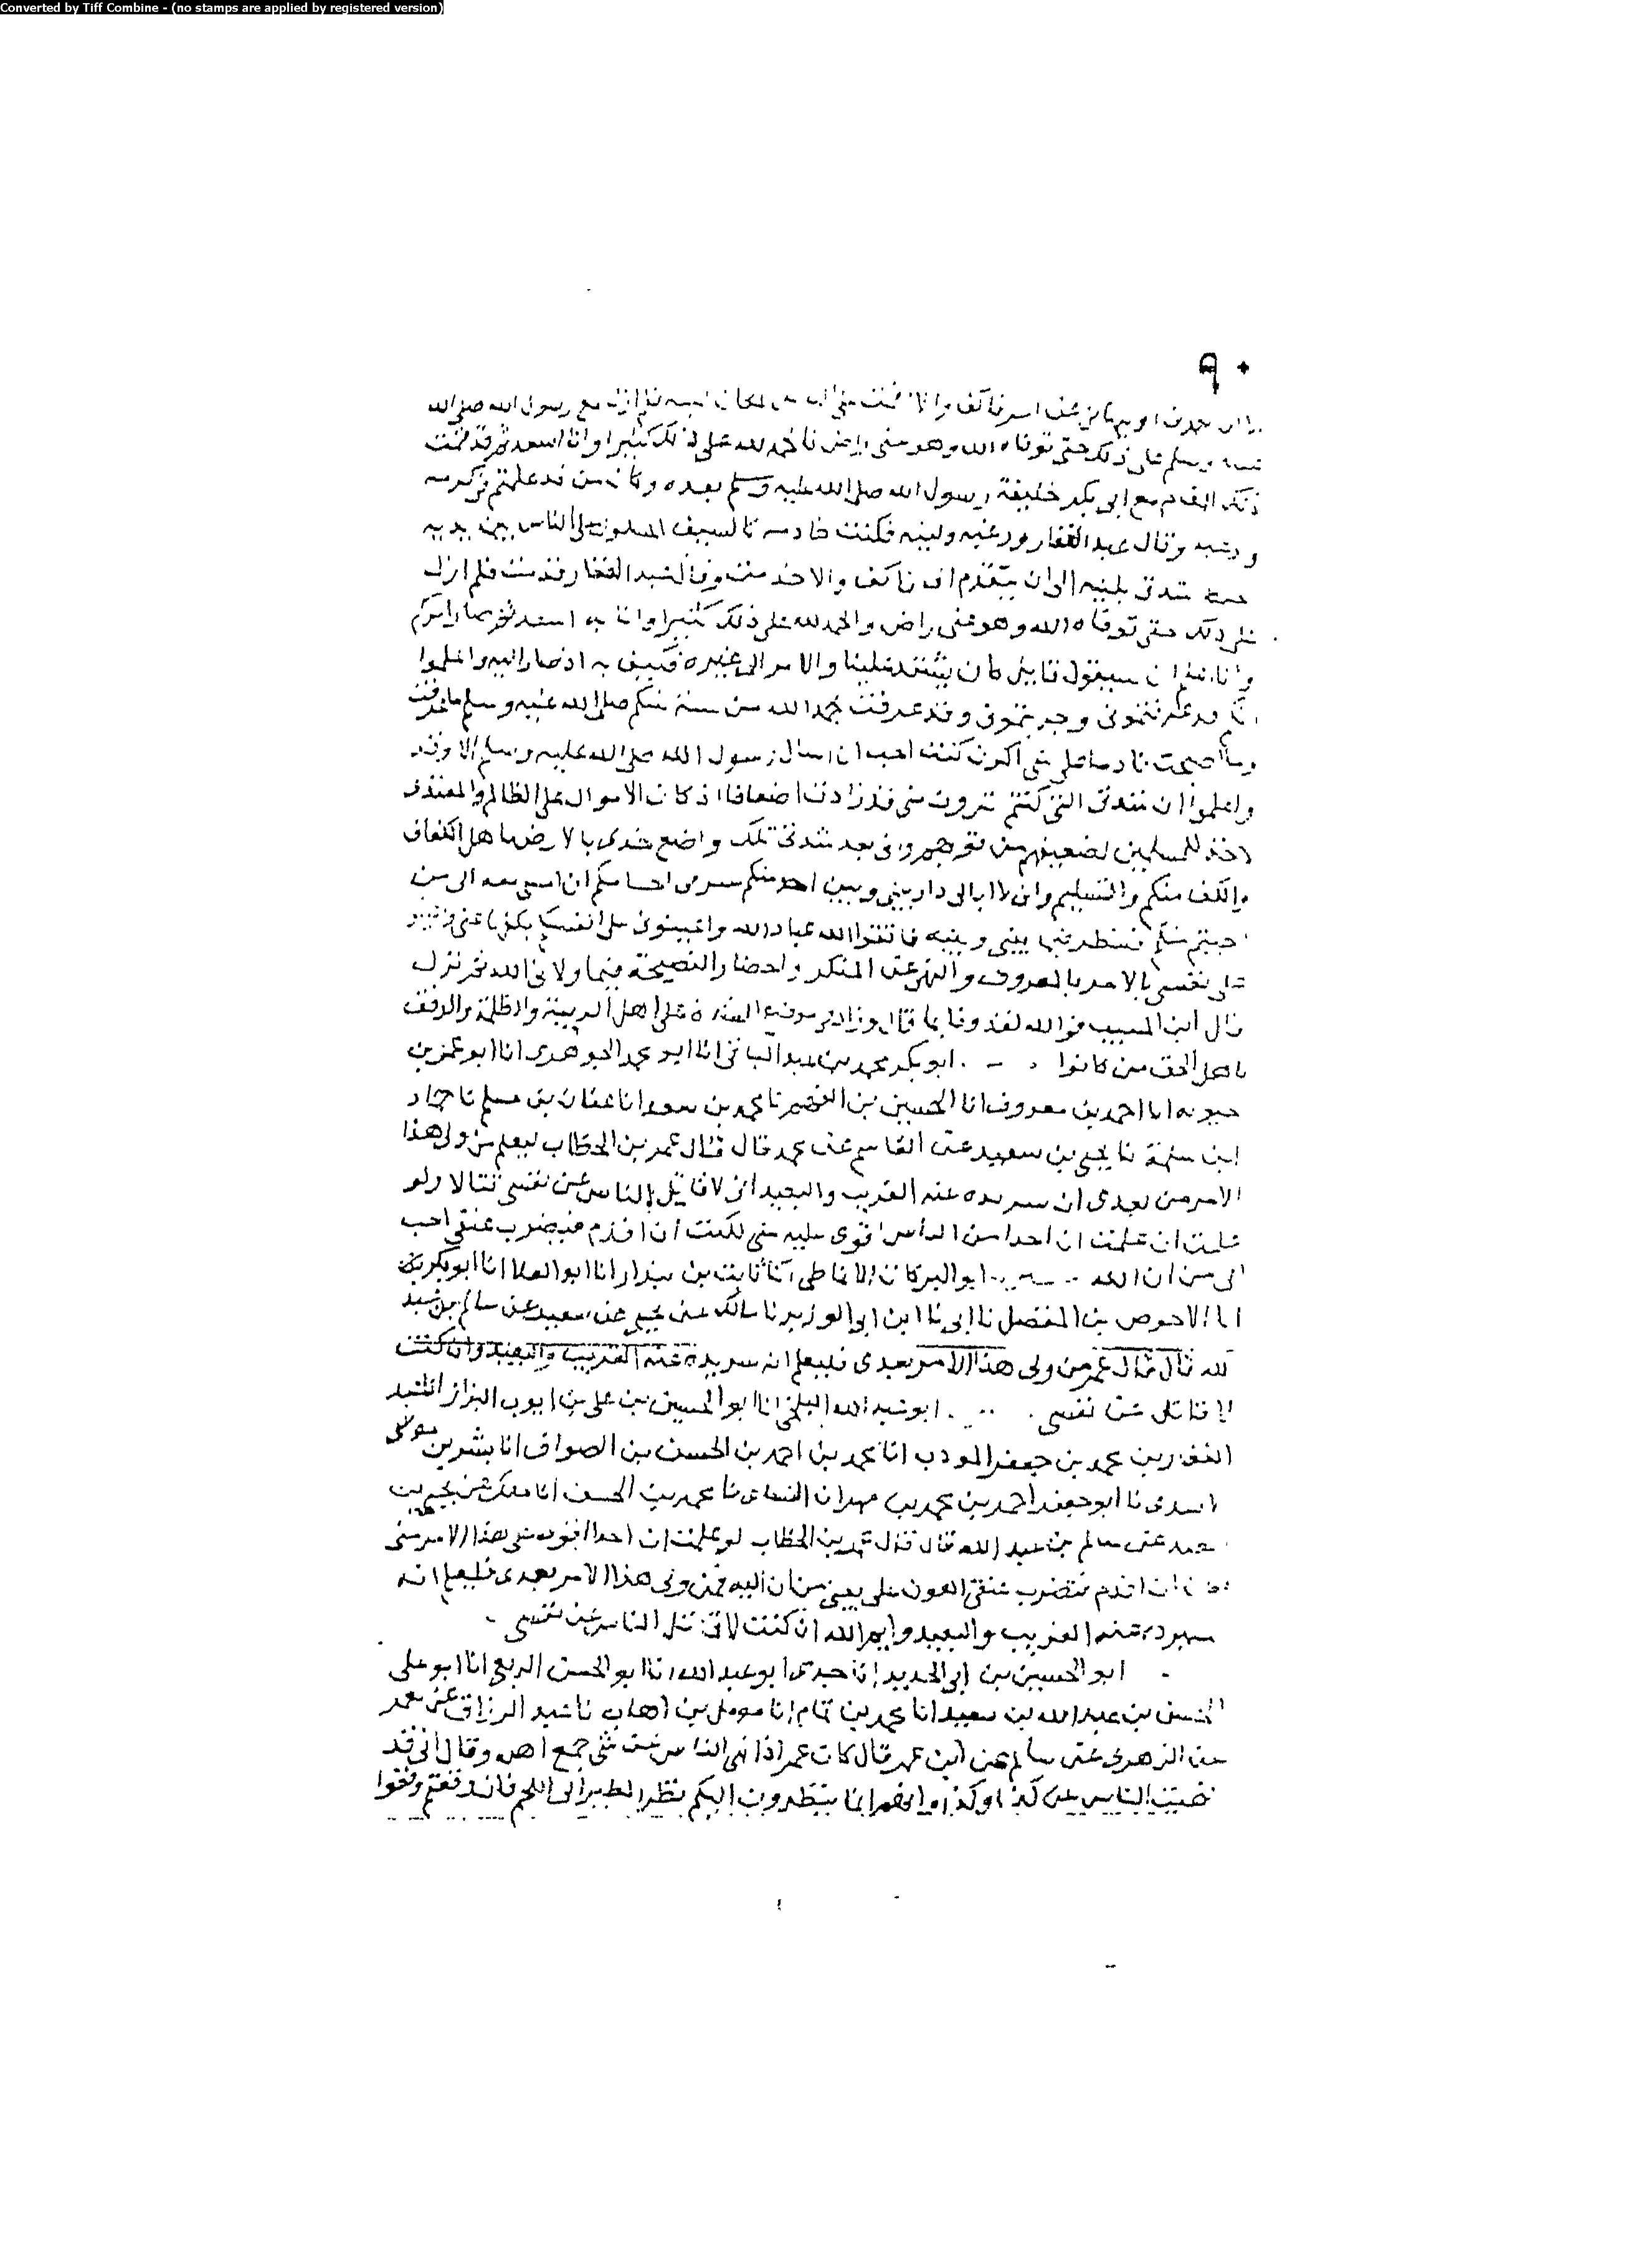 Converted by Tiff Combine - (no stamps are applied by registered version)
٩٠
مع رسول الله صلى الله
وسلم على ذلك حتى توفاه الله وهو عني راض فالحمد لله على ذلك كثيرا وانا اسعد ثم قد قمت
ذلك المقام مع ابي بكر خليفة رسول الله صلى الله عليه وسلم بعده وكان من قد علمتم في كرمه
وقال عبد الغفار ورعيه ولينه فكنت خادمه كالسيف المسلول على الناس بين يديه
شدتي بلينه الى ان يتقدم الي فاكف والا قدمت وقال عبد الغفار قدمت فلم ازل
على ذلك حتى توفاه الله وهو عني راض والحمد لله على ذلك كثيرا وانا به اسعد ثم صار امركم
ان سيقول قايل كان يشتد علينا والامر الى غيره فكيف به اذ صار اليه واعلموا
وجربتموني وقد عرفت بحمد الله من سنة نبيكم صلى الله عليه وسلم ما عرفت
وما اصبحت نادما على شي اكون كنت احب ان اسال رسول الله صلى الله عليه وسلم الا وقد
واعلموا ان شدتي التي كنتم ترون مني قد زادت اضعافا اذ كان الامر الي على الظالم والمعتدي
والاخذ للمسلمين لضعيفهم من قويهم واني بعد شدتي تلك واضع خدي بالارض لاهل الكفاف
والكف منكم والتسليم واني لا ابالي ان بيني وبين احد منكم من احكامكم ان امشي معه الى من
احببتم منكم فينظر فيما بيني وبينه فاتقوا الله عباد الله واعينوني على انفسكم بكفها عني واعينوني
على نفسي بالامر بالمعروف والنهي عن المنكر واحضار النصيحة فيما ولاني الله ثم نزل
قال ابن المسيب فوالله لقد وفا بما قال وزاد في موضع الشدة على اهل الريبة والظلمة والرفق
باهل الحق من كانوا . ابو بكر محمد بن عبد الباقي انا ابو محمد الجوهري انا ابو عمر بن
حيويه انا احمد بن معروف انا الحسين بن الفهم نا محمد بن سعد انا عفان بن مسلم نا حماد
ابن سلمة نا يحيى بن سعيد عن القاسم عن محمد قال قال عمر بن الخطاب ليعلم من ولي هذا
الامر من بعدي ان سيريده عنه القريب والبعيد اني لاقاتل الناس عن نفسي قتالا ولو
علمت ان احدا من الناس اقوى عليه مني لكنت ان اقدم فيضرب عنقي احب
الي من ان اليه . ابو البركات الانماطي انا ثابت بن بندار انا ابو العلا انا ابو بكر
انا الاحوص بن المفضل نا ابي نا ابن ابي الوزير نا مالك عن يحيى بن سعيد عن سالم بن عبد
الله قال قال عمر من ولي هذا الامر بعدي فليعلم انه سيريده عنه القريب والبعيد وان كنت
لاقاتل عن نفسي . ابو عبد الله البلخي انا ابو الحسين بن علي بن ايوب البزاز انا عبد
الغفار بن محمد بن جعفر المودب انا محمد بن احمد بن الحسن بن الصواف انا بشر بن موسى
الاسدي نا ابو جعفر احمد بن محمد بن مهران نا محمد بن الحسن انا ملك عن يحيى بن
سعيد عن سالم بن عبد الله قال قال عمر بن الخطاب لو علمت ان احدا اقوى على هذا الامر مني
ان اقدم فتضرب عنقي اهون علي من ان اليه فمن ولي هذا الامر بعدي فليعلم انه
سيرده عنه القريب والبعيد وايم الله ان كنت لاقاتل الناس عن نفسي .
ابو الحسين بن ابي الحديد انا جدي ابو عبد الله انا ابو الحسن الربعي انا ابو علي
الحسن بن عبد الله بن سعيد انا محمد بن تمام انا مومل بن اهاب نا عبد الرزاق عن معمر
عن الزهري عن سالم عن ابن عمر قال كان عمر اذا نهى الناس عن شي جمع اهله وقال اني قد
نهيت الناس عن كذا وكذا وانهم انما ينظرون اليكم نظر الطير الى اللحم فان وقعتم وقعوا